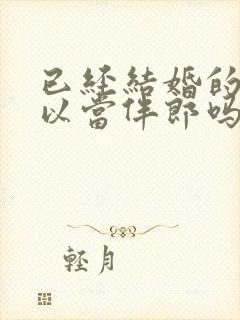 已经結婚的
以當伴郎吗
輕月